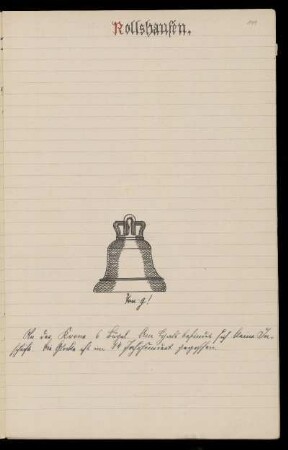 Rollshausen.
Ton g!
An der Krone 6 Bügel. Am Hals befindet sich keine In-
schrift. Die Glocke ist im 14 Jahrhundert gegossen.